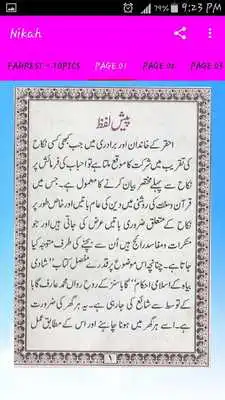 9:23 PM
Nikah
FAHREST - TOPICS
PAGE 01
PAGE 02
PAGE 03
پیش لفظ
احقر کے خاندان اور برادری میں جب کبھی کسی نکاح
کی تقریب میں شرکت کا موقع ملتا ہے تو احباب کی فرمائش پر
نکاح سے پہلے مختصر بیان کرنے کا معمول ہے۔ جس میں
قرآن و سنت کی روشنی میں دین کی عام باتیں اور خاص طور پر
نکاح کے متعلق ضروری باتیں عرض کی جاتی ہیں اور جو
منکرات و مفاسد رائج ہیں اُن سے بچنے کی طرف متوجہ کیا
جاتا ہے۔ چنانچہ اس موضوع پر قدرے مفصل کتاب "شادی
بیاہ کے اسلامی احکام" گابا سنز کے روح رواں محمد عارف گابا
کے توسط سے شائع کی جا رہی ہے۔ یہ ہر گھر کی ضرورت
ہے۔ اسے ہر گھر میں ہونا چاہئے اور اس کے مطابق عمل
۱